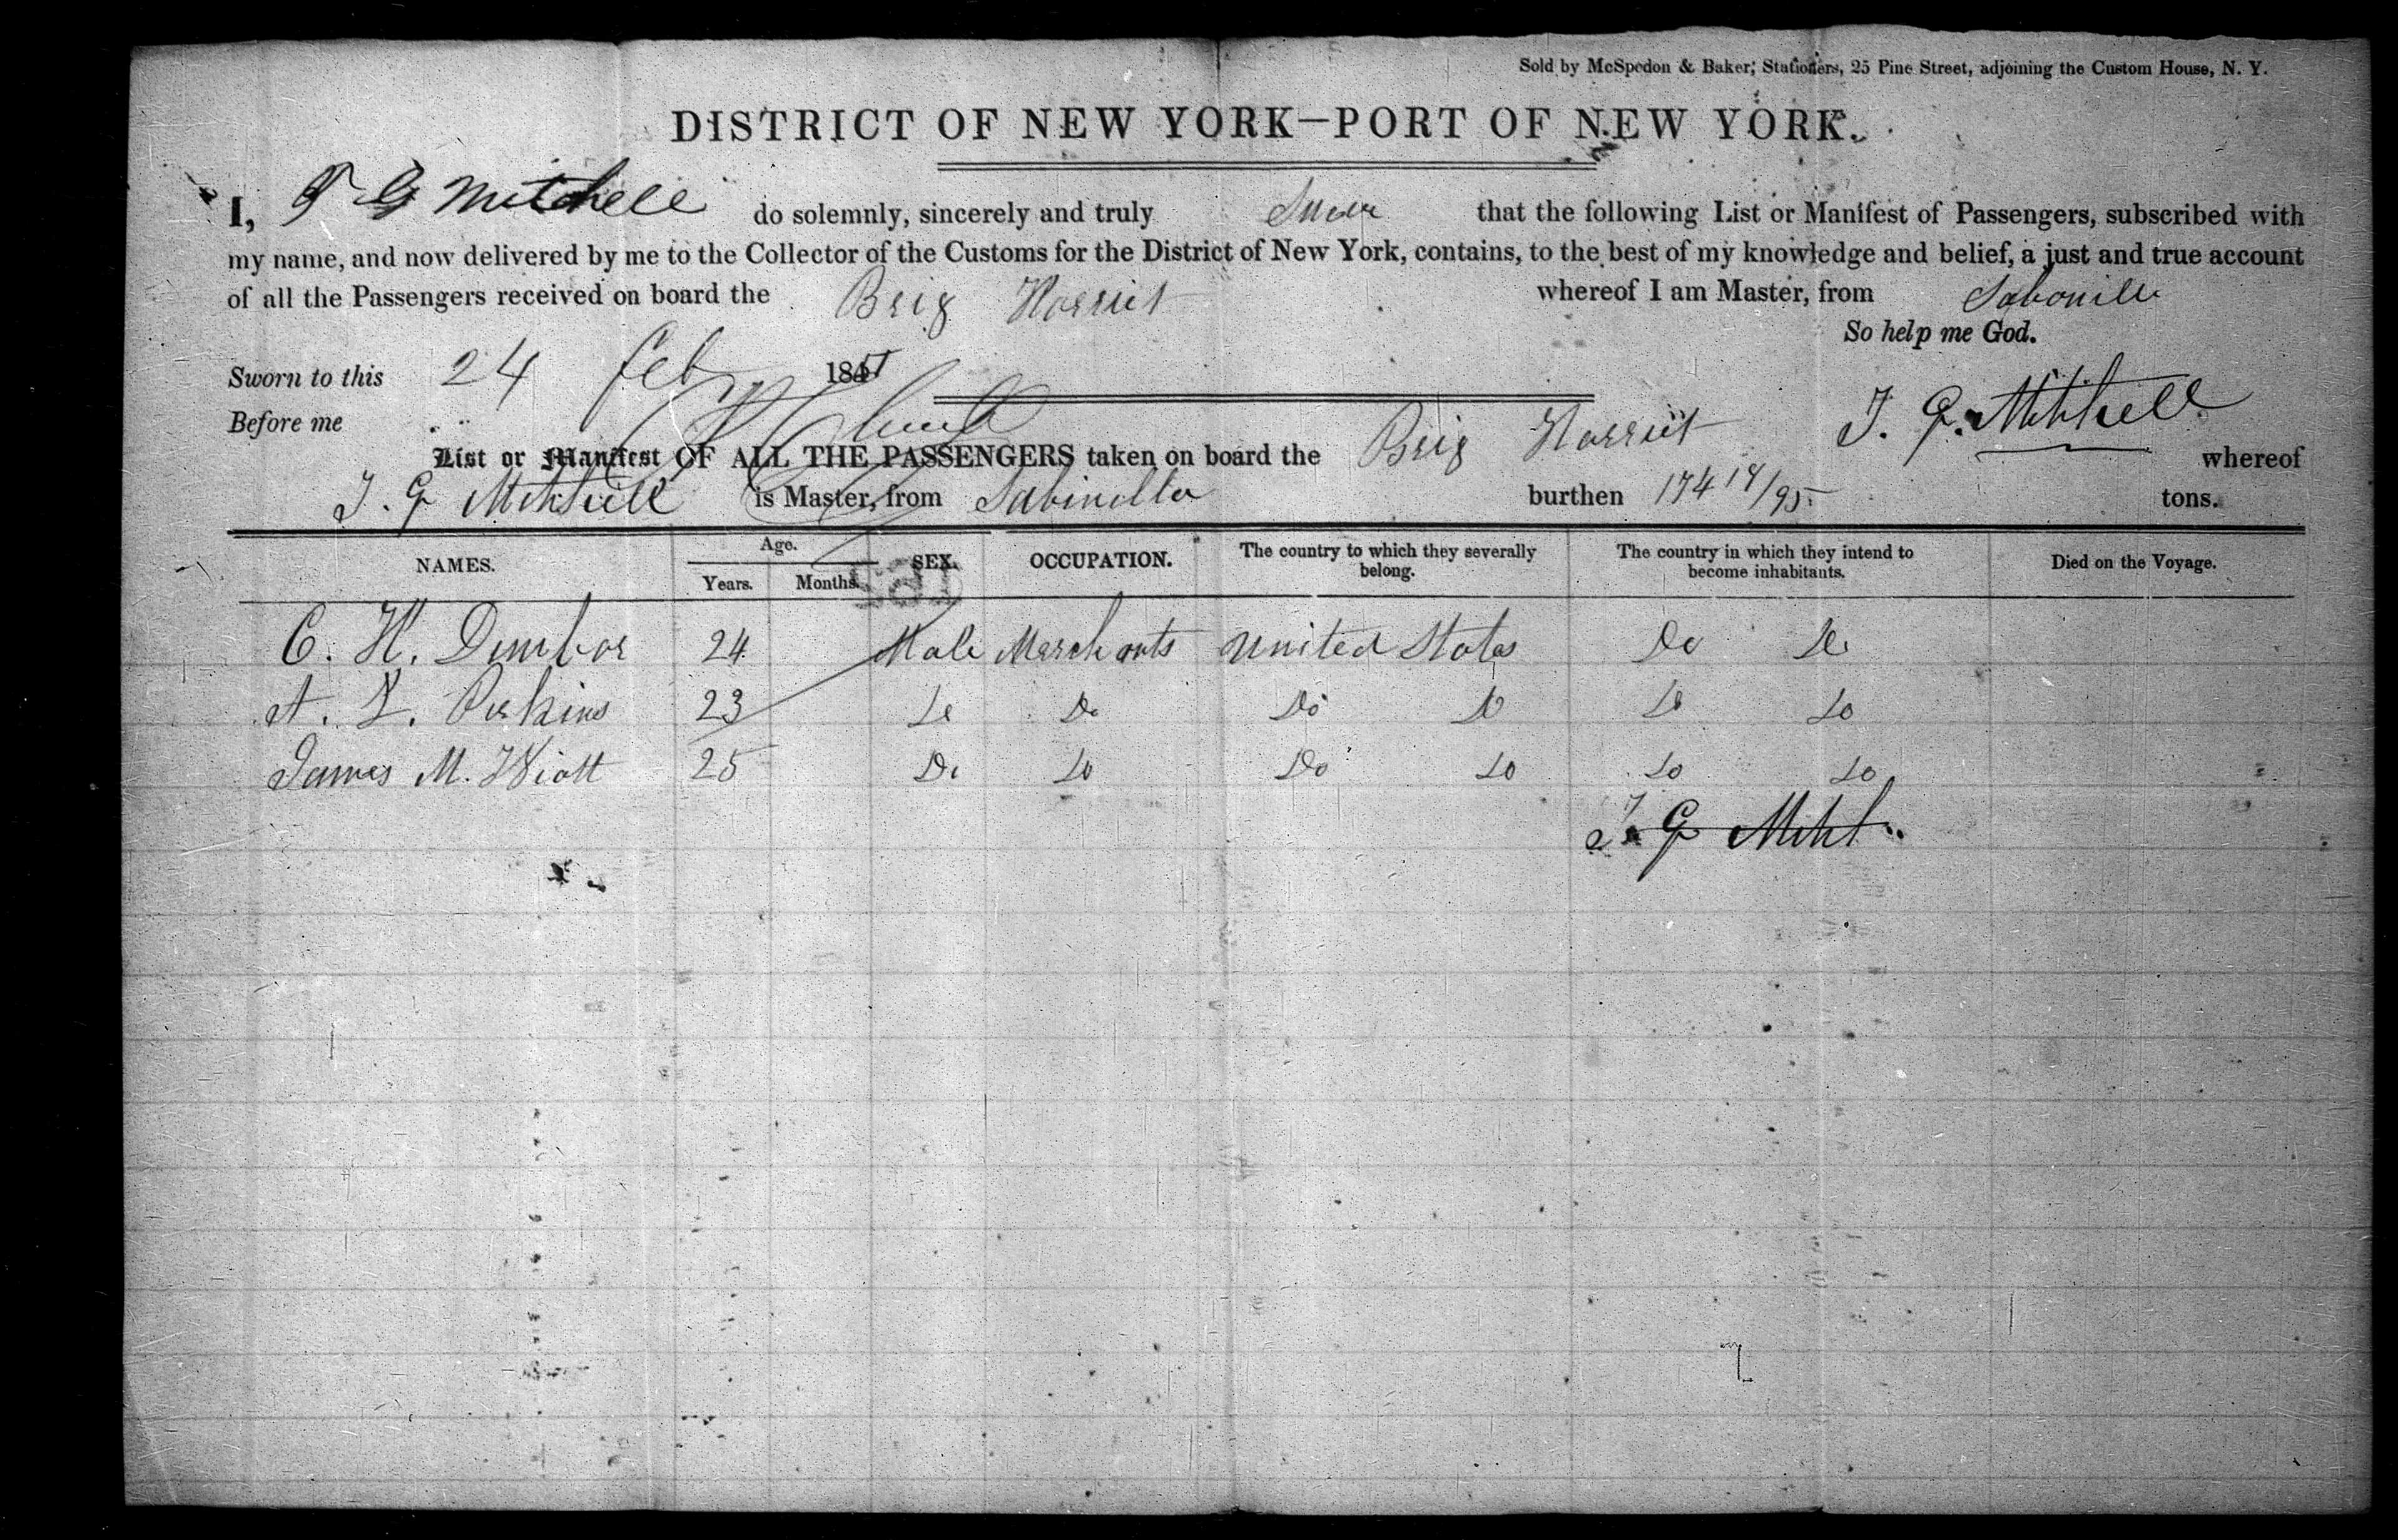 Sold by McSpedon & Baker, Stationers, 25 Pine Street, adjoining the Custom House, N. Y.
DISTRICT OF NEW YORK—PORT OF NEW YORK.
I, T G Mitchell do solemnly, sincerely and truly Swear that the following List or Manifest of Passengers, subscribed with
my name, and now delivered by me to the Collector of the Customs for the District of New York, contains, to the best of my knowledge and belief, a just and true account
of all the Passengers received on board the Brig Harriet whereof I am Master, from Sabonilla
So help me God.
Sworn to this 24 Feb 1851
Before me T. G. Mitchell
List or Manifest OF ALL THE PASSENGERS taken on board the Brig Harriet whereof
T. G Mitchell is Master, from Sabinilla burthen 174 14/95 tons.
NAMES. Age. Years. Months. SEX. OCCUPATION. The country to which they severally belong. The country in which they intend to become inhabitants. Died on the Voyage.
C. H. Dunbar 24 Male Merchants United States Do Do
A. L. Perkins 23 Do Do Do Do Do Do
James M. Wiatt 25 Do Do Do Do Do Do
T. G Mitchl